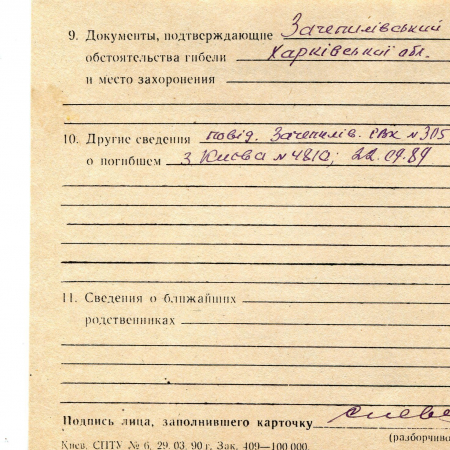 9. Документы, подтверждающие Зачепилівський
обстоятельства гибели Харківської обл.
и место захоронения
10. Другие сведения повід. Зачепилів. РВК №305
о погибшем з Києва №4810; 22.09.89
11. Сведения о ближайших
родственниках
Подпись лица, заполнившего карточку
(разборчиво
Киев, СПТУ № 6, 29. 03. 90 г. Зак. 409—100 000.